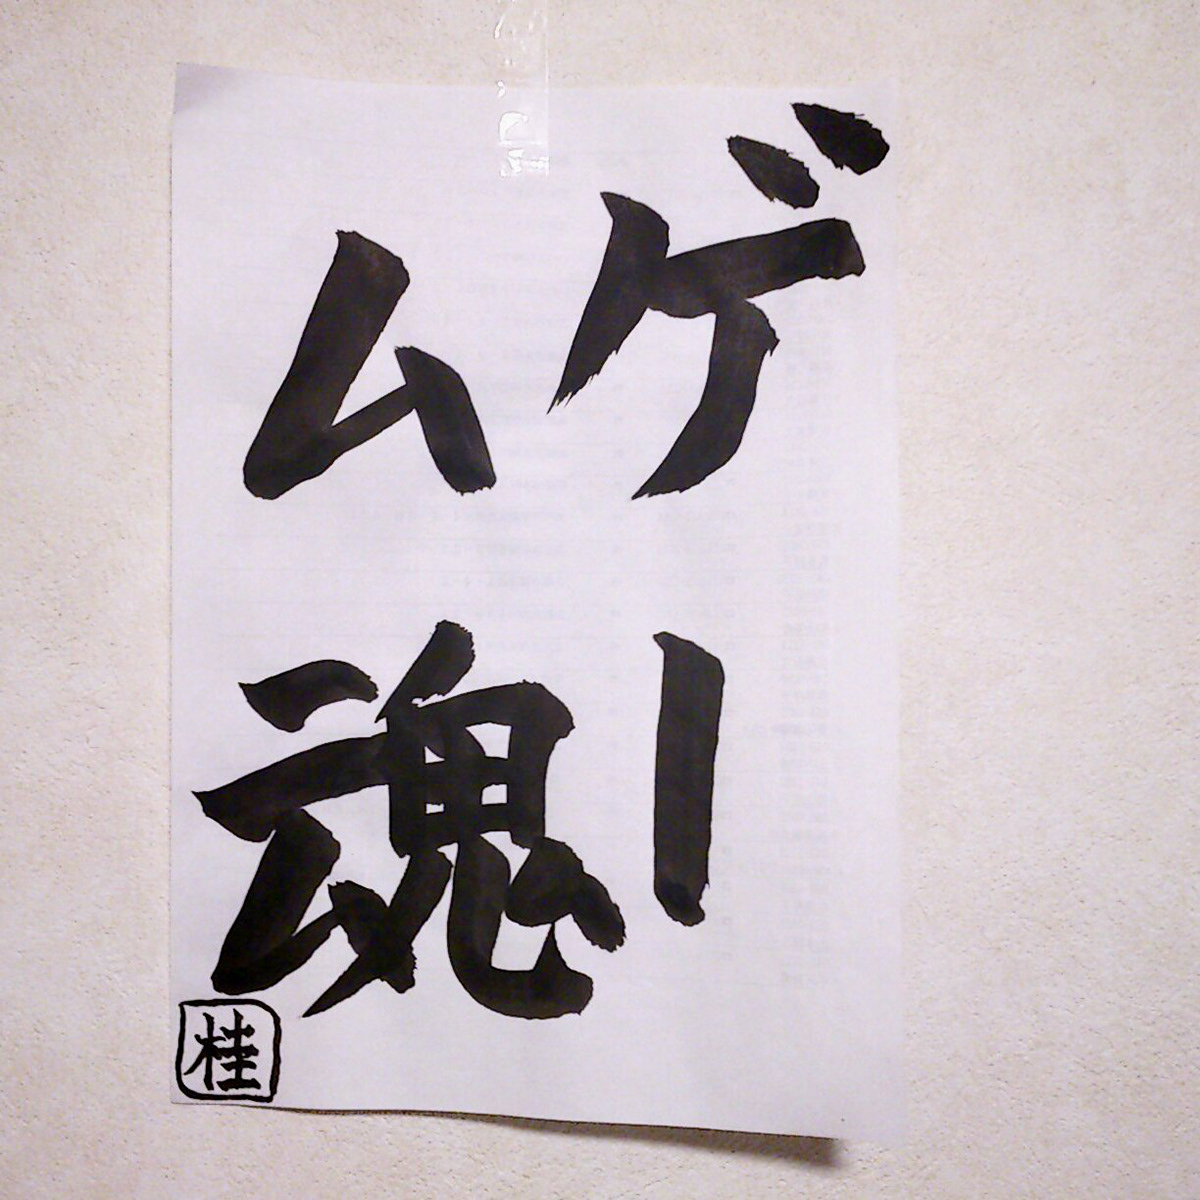 ゲー
ム魂
桂